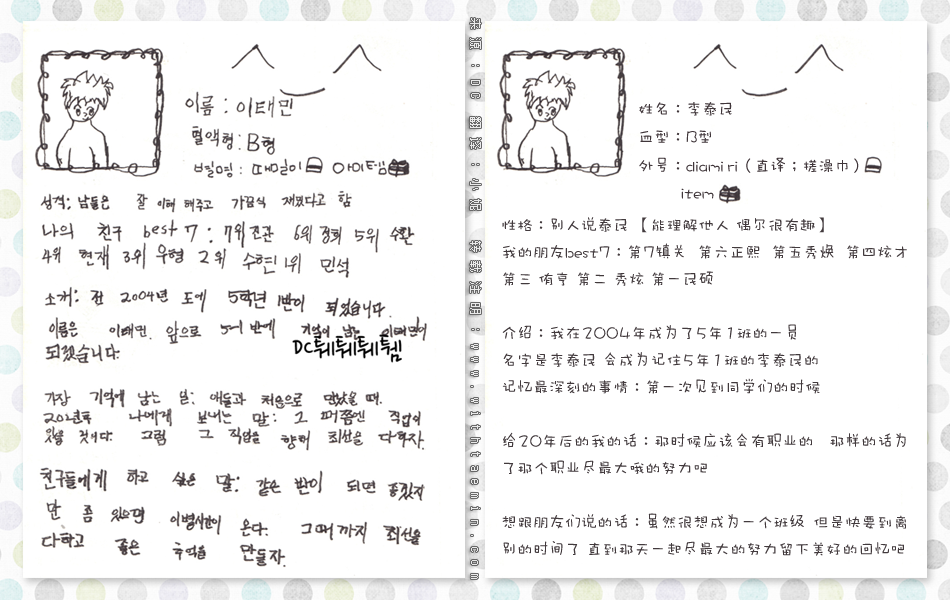 이름 : 이태민
혈액형 : B형
별명 : 때밀이 아이템
성격: 남들은 잘 이해 해주고 가끔식 재밌다고 함
나의 친구 best 7 : 7위 진관 6위 정희 5위 수환
4위 현재 3위 우형 2위 수현 1위 민석
소개: 전 2004년 도에 5학년 1반이 되었습니다.
이름은 이태민. 앞으로 5-1 반에 기억이 남는 이태민이
되겠습니다.
DC튀튀튀튐
가장 기억에 남는 일: 애들과 처음으로 만났을 때.
20년후 나에게 보내는 말: 그 때쯤엔 직업이
있을 것이다. 그럼 그 직업을 향해 최선을 다하자.
친구들에게 하고 싶은 말: 같은 반이 되면 좋겠지
만 좀 있으면 이별시간이 온다. 그때까지 최선을
다하고 좋은 추억을 만들자.
来源：DC 翻译：小妮 转载注明：www.withtaemin.com
姓名：李泰民
血型：B型
外号：diamiri（直译；搓澡巾）
item
性格：别人说泰民【能理解他人 偶尔很有趣】
我的朋友best7：第7镇关 第六正熙 第五秀焕 第四炫才
第三 侑亨 第二 秀炫 第一民硕
介绍：我在2004年成为了5年1班的一员
名字是李泰民 会成为记住5年1班的李泰民的
记忆最深刻的事情：第一次见到同学们的时候
给20年后的我的话：那时候应该会有职业的 那样的话为
了那个职业尽最大哦的努力吧
想跟朋友们说的话：虽然很想成为一个班级 但是快要到离
别的时间了 直到那天一起尽最大的努力留下美好的回忆吧